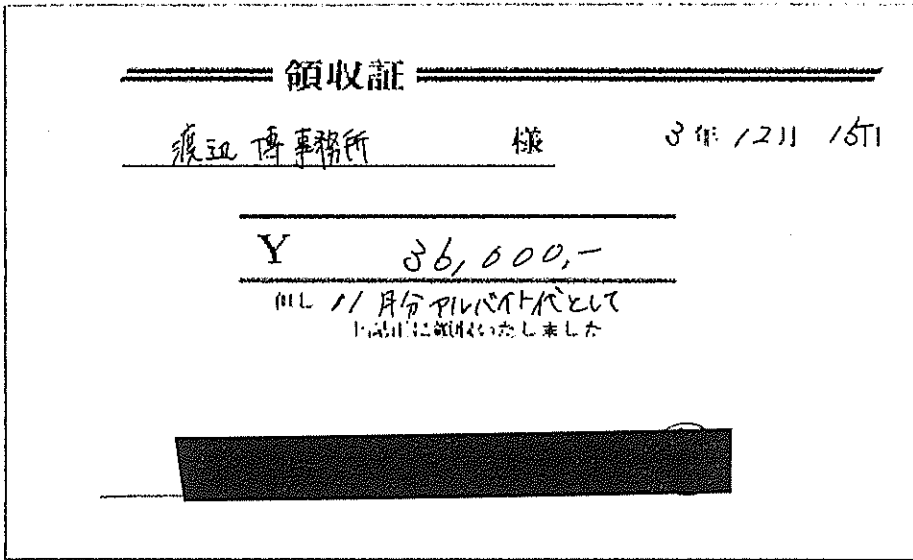 領収証
渡辺博事務所 様 3年12月15日
¥ 36,000,-
但し 11月分アルバイト代として
上記正に領収いたしました